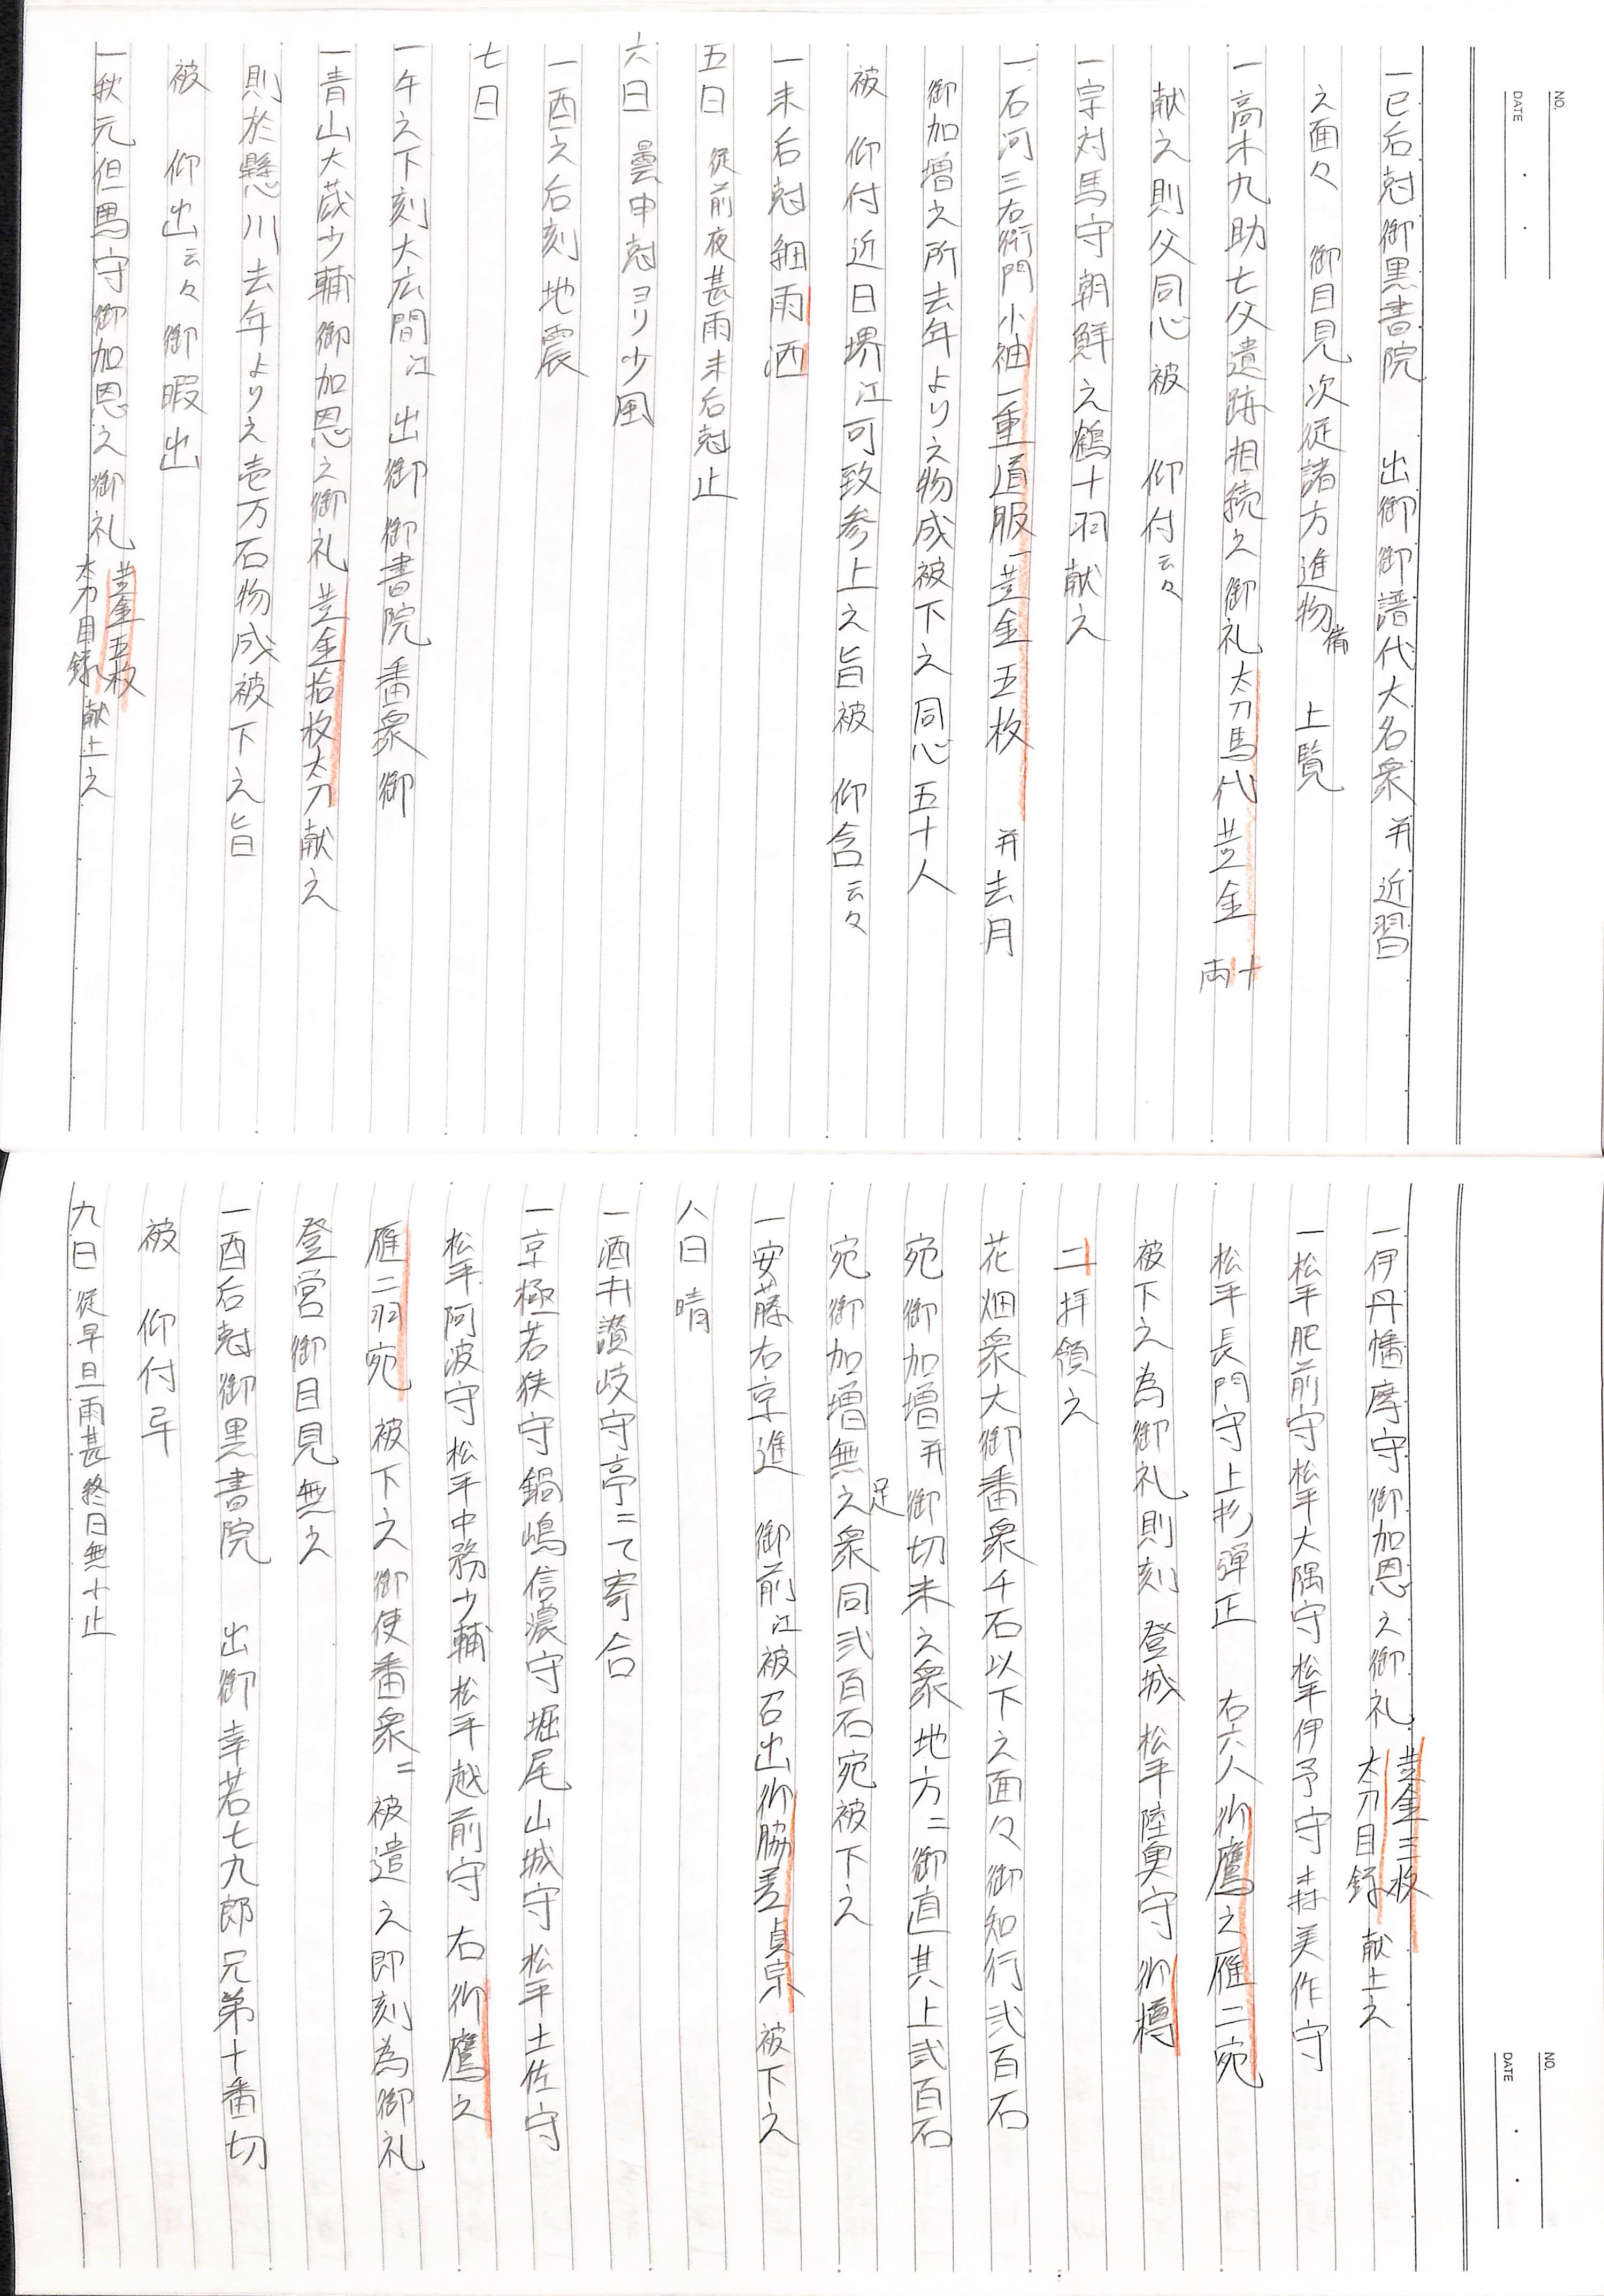 NO.
DATE
一巳后尅御黒書院　出御御譜代大名衆并近習
之面々　御目見次従諸方進物備　上覧
一高木九助亡父遺跡相続之御礼太刀馬代黄金十両
献之則父同心被　仰付云々
一宗対馬守朝鮮之鶴十羽献之
一石河三右衛門小袖一重道服一黄金五枚　并去月
御加増之所去年より之物成被下之同心五十人
被　仰付近日堺江可致参上之旨被　仰含云々
一未后尅細雨洒
五日　従前夜甚雨未后尅止
六日　曇申尅ヨリ少風
一酉之后刻地震
七日
一午之下刻大広間江　出御御書院番衆御
一青山大蔵少輔御加恩之御礼黄金拾枚太刀献之
則於懸川去年より之壱万石物成被下之旨
被　仰出云々御暇出
一秋元但馬守御加恩之御礼黄金五枚太刀目録献上之
NO.
DATE
一伊丹幡摩守御加恩之御礼黄金三枚太刀目録献上之
一松平肥前守松平大隅守松平伊予守森美作守
松平長門守上杉弾正　右六人御鷹之雁二宛
被下之為御礼則刻登城松平陸奥守御樽
二拝領之
花畑衆大御番衆千石以下之面々御知行弐百石
宛御加増并御切米之衆地方ニ御直其上弐百石
宛御加増無足之衆同弐百石宛被下之
一安藤右京進　御前江被召出御脇差貞宗被下之
八日　晴
一酒井讃岐守亭ニて寄合
一京極若狭守鍋嶋信濃守堀尾山城守松平土佐守
松平阿波守松平中務少輔松平越前守右御鷹之
雁二羽宛被下之御使番衆ニ被遣之即刻為御礼
登営御目見無之
一酉后尅御黒書院　出御幸若七九郎兄弟十番切
被　仰付畢
九日　従早旦雨甚終日無止